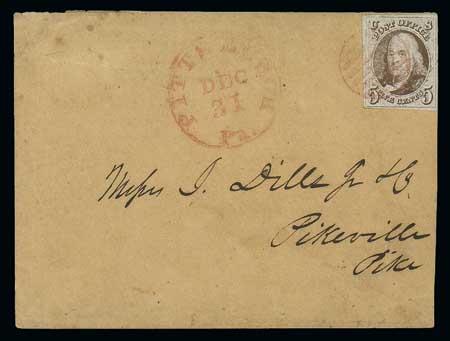 POST OFFICE
FIVE CENTS
5 5
PITTSBURGH
DEC
31
Pa.
Messrs J. Dills Jr & Co
Pikeville
Pike